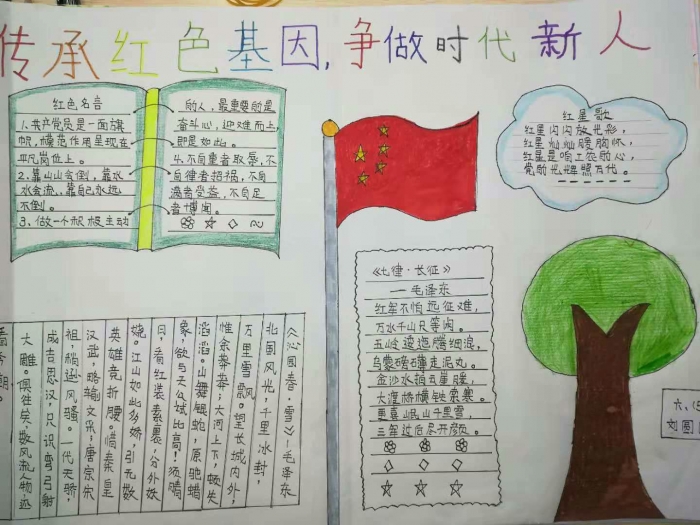 传承红色基因,争做时代新人
红色名言
1.共产党员是一面旗
帜,模范作用呈现在
平凡岗位上。
2.靠山山会倒,靠水
水会流,靠自己永远
不倒。
3.做一个积极主动
的人,最重要的是
奋斗心,迎难而上,
即是如此。
4.不自重者取辱,不
自律者招祸,不自
满者受益,不自足
者博闻。
红星歌
红星闪闪放光彩,
红星灿灿暖胸怀,
红星是咱工农的心,
党的光辉照万代。
《七律·长征》
—毛泽东
红军不怕远征难,
万水千山只等闲。
五岭逶迤腾细浪,
乌蒙磅礴走泥丸。
金沙水拍云崖暖,
大渡桥横铁索寒。
更喜岷山千里雪,
三军过后尽开颜。
《沁园春·雪》—毛泽东
北国风光,千里冰封,
万里雪飘。望长城内外,
惟余莽莽;大河上下,顿失
滔滔。山舞银蛇,原驰蜡
象,欲与天公试比高!须晴
日,看红装素裹,分外妖
娆。江山如此多娇,引无数
英雄竞折腰。惜秦皇
汉武,略输文采;唐宗宋
祖,稍逊风骚。一代天骄,
成吉思汗,只识弯弓射
大雕。俱往矣,数风流人物,还
看今朝。
六、(5
刘圆